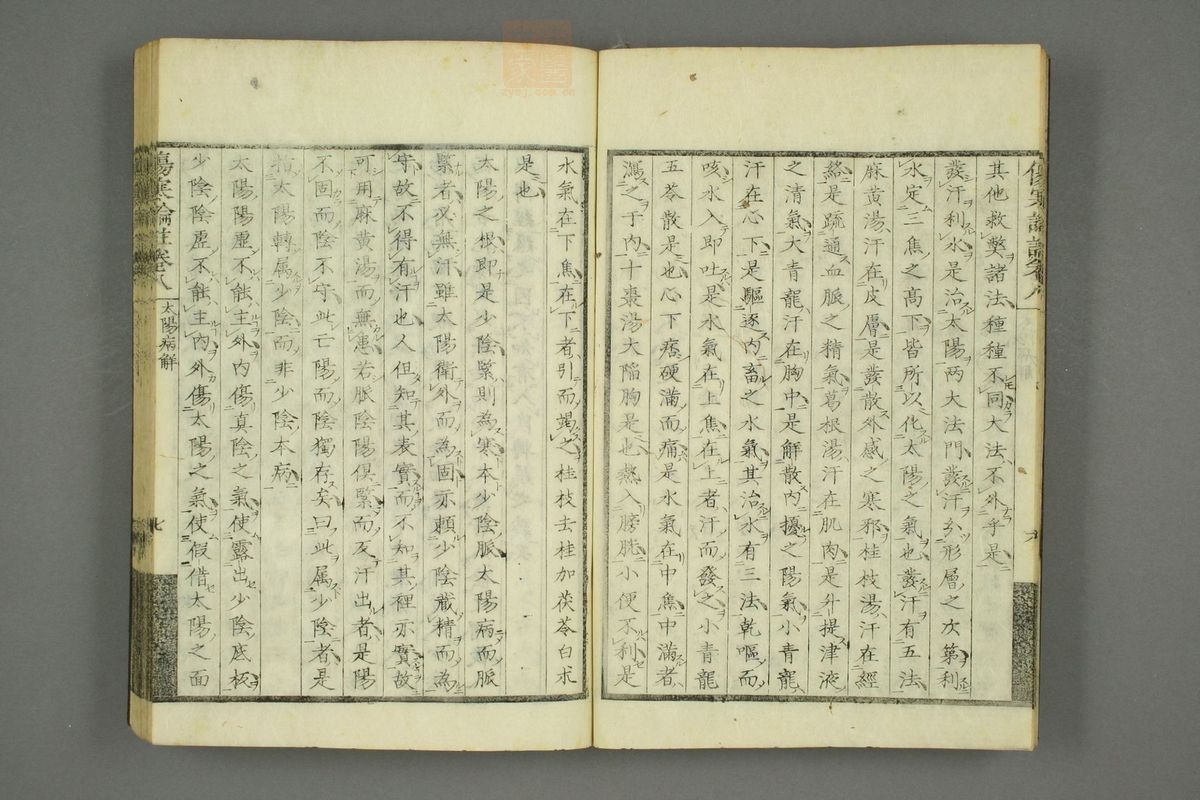 其他救獘諸法種種不同大法不外乎是
發汗利水是治太陽两大法門發汗分形層之次第利
水定三焦之高下皆所以化太陽之氣也發汗有五法
麻黄湯汗在皮層是發散外感之寒邪桂枝湯汗在經
絡是疏通血脈之精氣葛根湯汗在肌肉是升提津液
之清氣大青龍汗在胸中是解散内擾之陽氣小青龍
汗在心下是驅逐内畜之水氣其治水有三法乾嘔而
咳水入即吐是水氣在上焦在上者汗而發之小青龍
五苓散是也心下痞硬滿而痛是水氣在中焦中滿者
瀉之于内十棗湯大陷胸是也熱入膀胱小便不利是
水氣在下焦在下者引而竭之桂枝去桂加茯苓白术
是也
太陽之根即是少陰緊則為寒本少陰脈太陽病而脈
緊者必無汗雖太陽衛外而為固亦頼少陰藏精而為
守故不得有汗也人但知其表實而不知其裡亦實故
可用麻黄湯而無患若脈陰陽倶緊而反汗出者是陽
不固而陰不守此亡陽而陰獨存矣曰此属少陰者是
指太陽轉属少陰而非少陰本病
太陽陽虚不能主外内傷真陰之氣使露出少陰底板
少陰陰虚不能主内外傷太陽之氣使假借太陽之面
傷寒論註卷八
太陽病解
七